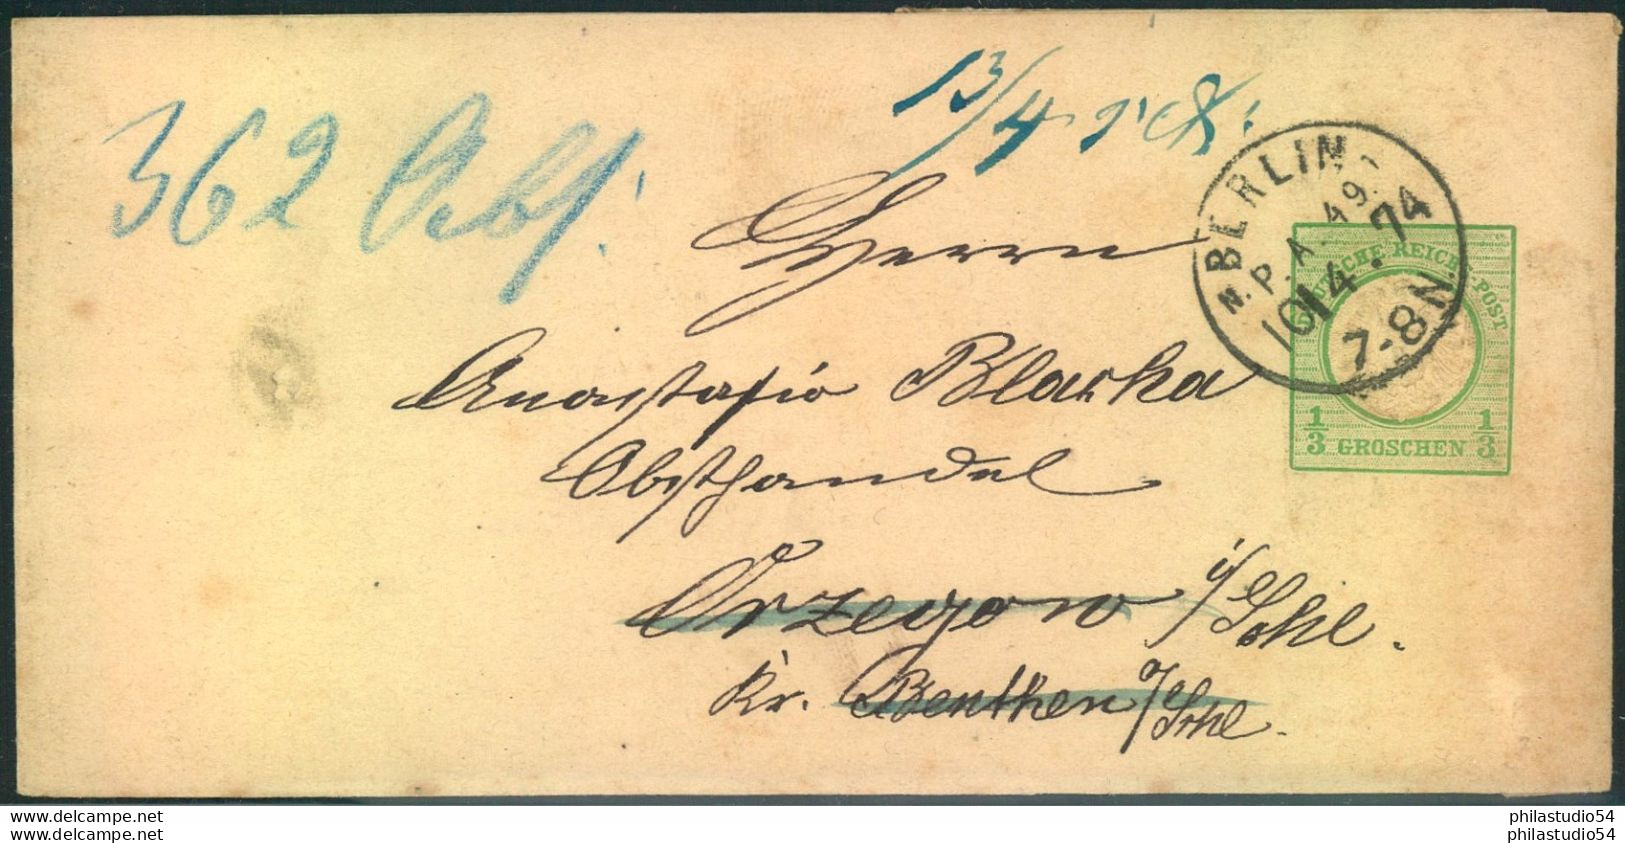 13/4
362
BERLIN
N. P. A. 49.
10 4. 74
7-8 N.
DEUTSCHE REICHS-POST
1/3 GROSCHEN 1/3
Herrn
Anastasio Blaska
Obsthandel
Orzegow i/Schl.
Kr. Beuthen o/Schl.
www.delcampe.net
www.delcampe.net
philastudio54
philastudio54